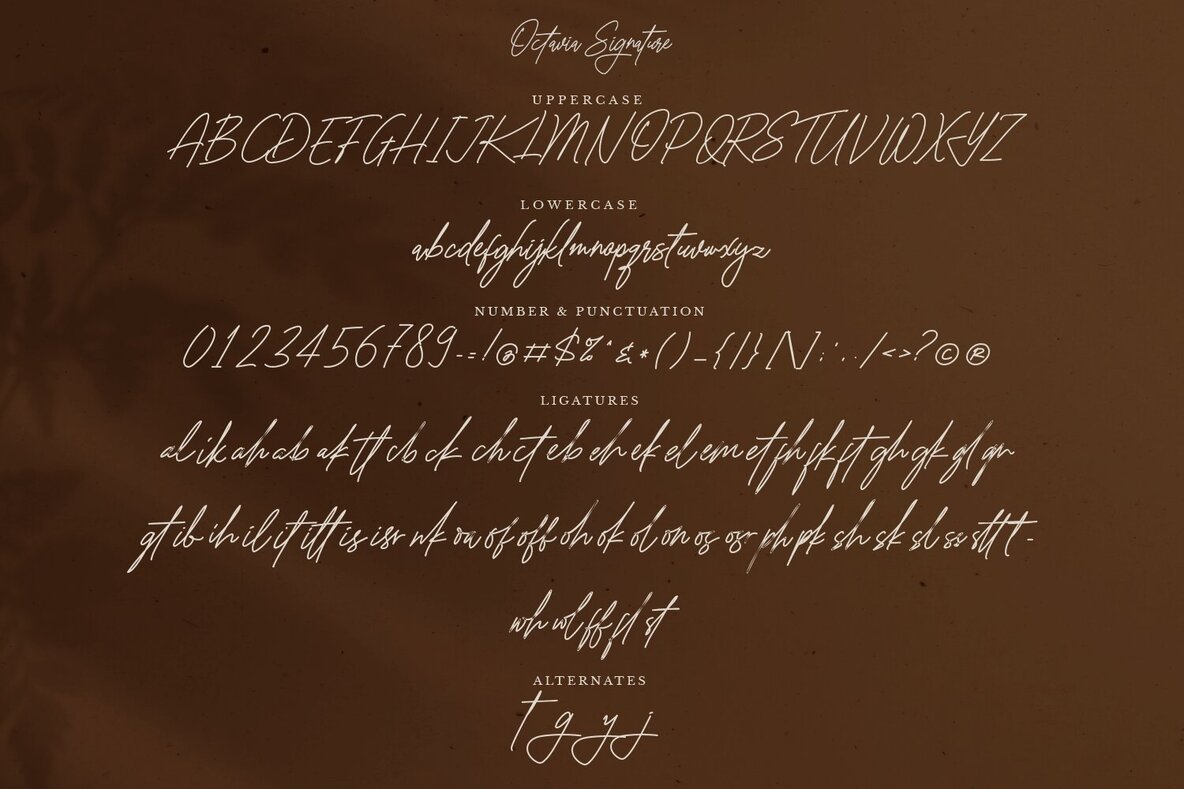 Octavia Signature
UPPERCASE
ABCDEFGHIJKLMNOPQRSTUVWXYZ
LOWERCASE
abcdefghijklmnopqrstuvwxyz
NUMBER & PUNCTUATION
0123456789-=!@#$%^&*()_{|}[\]:;,./<>?©®
LIGATURES
al ik ah ab ak tt cb ck ch ct eb eh ek el em et fh fk ft gh gk gl gn
gt ib ih il it itt is isr nk oa of off oh ok ol on os osr ph pk sh sk sl ss stt t-
wh wl ff fl st
ALTERNATES
t g y j